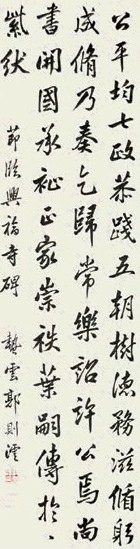 公平均七政恭踐五朝樹德務滋脩躬
成脩乃奏乞歸常樂詔許公焉尚
書開國承祉正家崇秩葉嗣傳於
紫紱 節臨興福寺碑 蟄雲郭則澐